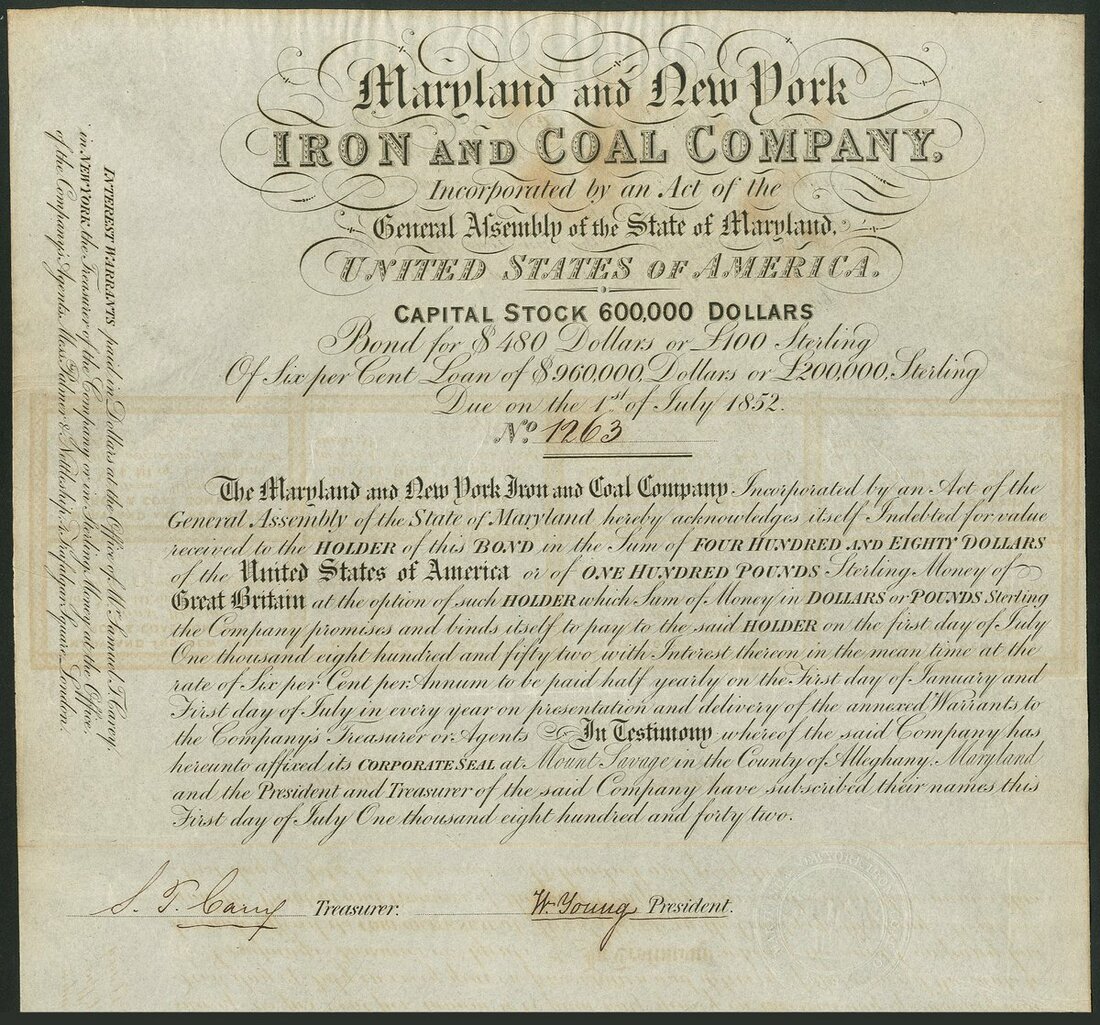 Maryland and New York
IRON AND COAL COMPANY,
Incorporated by an Act of the
General Assembly of the State of Maryland,
UNITED STATES OF AMERICA.
CAPITAL STOCK 600,000 DOLLARS
Bond for $480 Dollars or £100 Sterling
Of Six per Cent Loan of $960,000, Dollars or £200,000, Sterling
Due on the 1st of July 1852.
No. 1263
The Maryland and New York Iron and Coal Company Incorporated by an Act of the
General Assembly of the State of Maryland hereby acknowledges itself Indebted for value
received to the HOLDER of this BOND in the Sum of FOUR HUNDRED AND EIGHTY DOLLARS
of the United States of America or of ONE HUNDRED POUNDS Sterling Money of
Great Britain at the option of such HOLDER which Sum of Money in DOLLARS or POUNDS Sterling
the Company promises and binds itself to pay to the said HOLDER on the first day of July
One thousand eight hundred and fifty two with Interest thereon in the mean time at the
rate of Six per Cent per Annum to be paid half yearly on the First day of January and
First day of July in every year on presentation and delivery of the annexed Warrants to
the Company's Treasurer or Agents In Testimony whereof the said Company has
hereunto affixed its CORPORATE SEAL at Mount Savage in the County of Alleghany, Maryland
and the President and Treasurer of the said Company have subscribed their names this
First day of July One thousand eight hundred and forty two.
S. T. Carey Treasurer.
W. Young President.
INTEREST WARRANTS paid in Dollars at the Office of Mr. Samuel T. Carey.
in NEW YORK the Treasurer of the Company or in Sterling Money at the Office
of the Companys Agents, Mess. Palmer & Nettleship, Trafalgar Square, London.